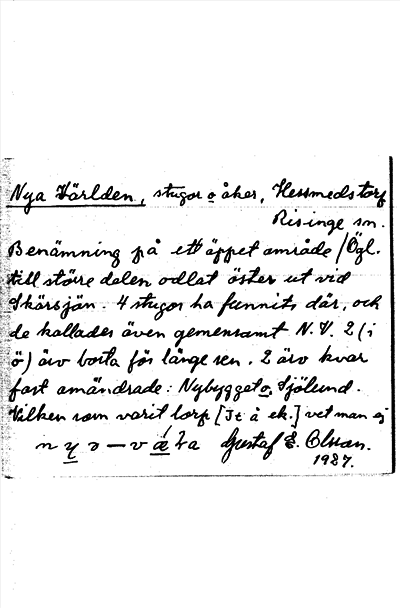 Nya Världen, stugor o åker, Hessmedstorp
Risinge sn.
Benämning på ett öppet område / Ögl.
till större delen odlat öster ut vid
Skärsjön. 4 stugor ha funnits där, och
de kallades även gemensamt N. V. 2 (i
ö) äro borta för länge sen. 2 äro kvar
fast omändrade: Nybygget o. Sjölund.
Vilken som varit torp [Jt å ek.] vet man ej
Gustaf E. Olsson.
1927.